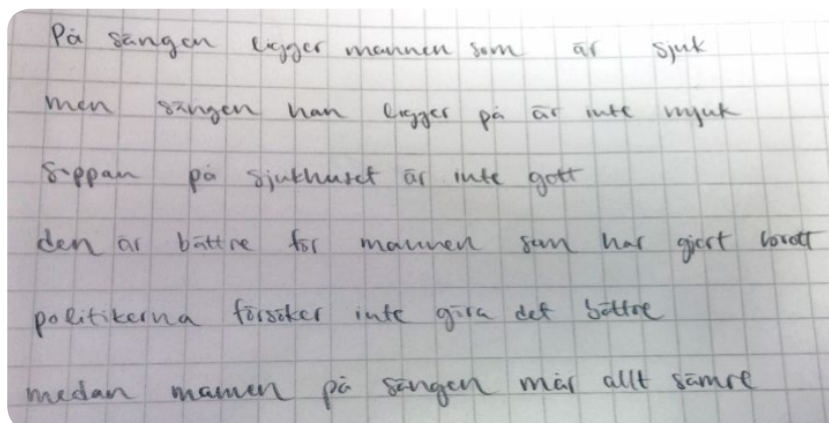 På sängen ligger mannen som är sjuk
men sängen han ligger på är inte mjuk
Soppan på sjukhuset är inte gott
den är bättre för mannen som har gjort brott
politikerna försöker inte göra det bättre
medan mannen på sängen mår allt sämre